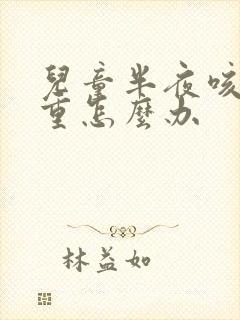 兒童半夜咳
重怎麼办
林益如